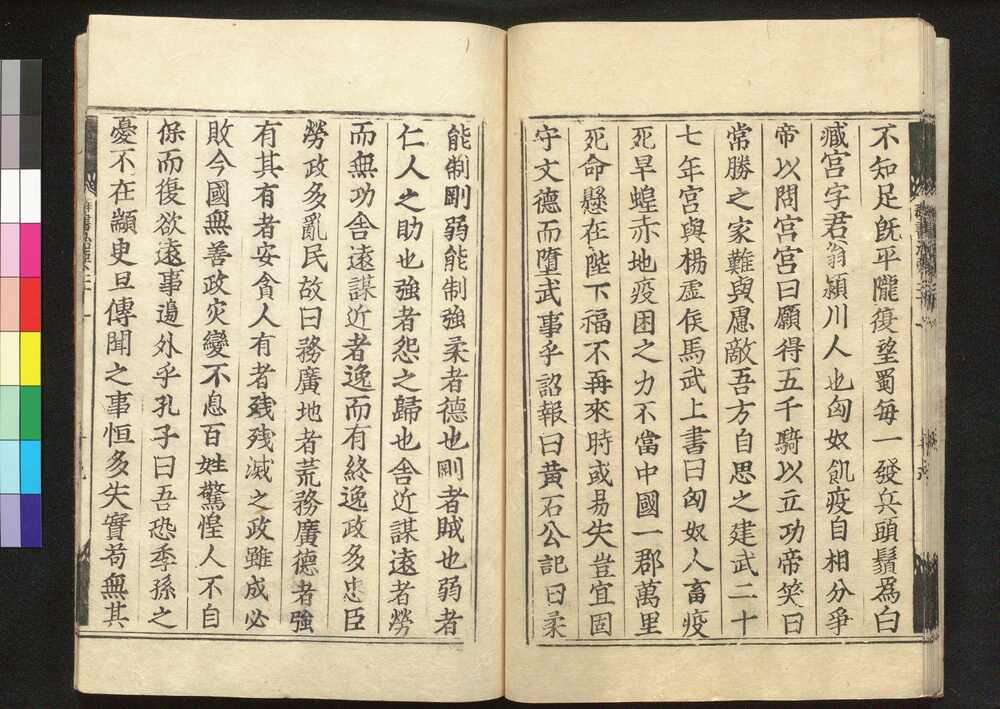 不知足既平隴復望蜀每一發兵頭鬚爲白
臧宮字君翁潁川人也匈奴飢疫自相分爭
帝以問宮宮曰願得五千騎以立功帝笑曰
常勝之家難與慮敵吾方自思之建武二十
七年宮與楊虛侯馬武上書曰匈奴人畜疫
死旱蝗赤地疫困之力不當中國一郡萬里
死命懸在陛下福不再來時或易失豈宜固
守文德而墮武事乎詔報曰黃石公記曰柔
能制剛弱能制強柔者德也剛者賊也弱者
仁人之助也強者怨之歸也舍近謀遠者勞
而無功舍遠謀近者逸而有終逸政多忠臣
勞政多亂民故曰務廣地者荒務廣德者強
有其有者安貪人有者殘殘滅之政雖成必
敗今國無善政灾變不息百姓驚惶人不自
保而復欲遠事邊外乎孔子曰吾恐季孫之
憂不在顓臾且傳聞之事恒多失實苟無其